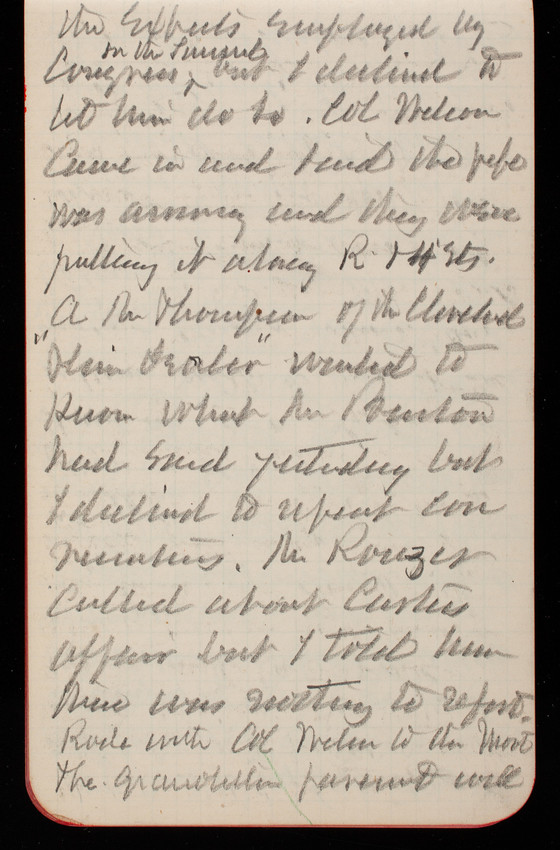 the Experts employed by
on the Tunnel
Congress, but I declind to
let him do so. Col Wilson
Came in and said the pipe
was arriving and they were
putting it along R. I &
A Mr Thompson of the Cleveland
"Plain Dealer" wanted to
Know what Mr
had said yesterday but
I declind to repeat con
versations. Mr Rouzer
Called about Curtis
affair but I told him
there was nothing to report.
Rode with Col Wilson to the
The pavement will